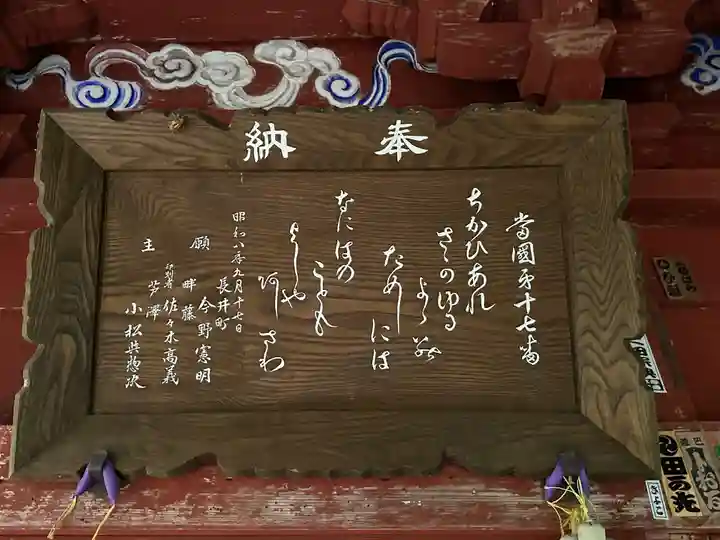 奉納
當國第十七番
ちかひあれ
ゆる
ためしには
なにはの
ことも
よしや
あしさわ
昭和八年九月十七日
長井町
願主
畔藤 今野憲明
彫刻者 佐々木高義
芦澤 小松與惣次